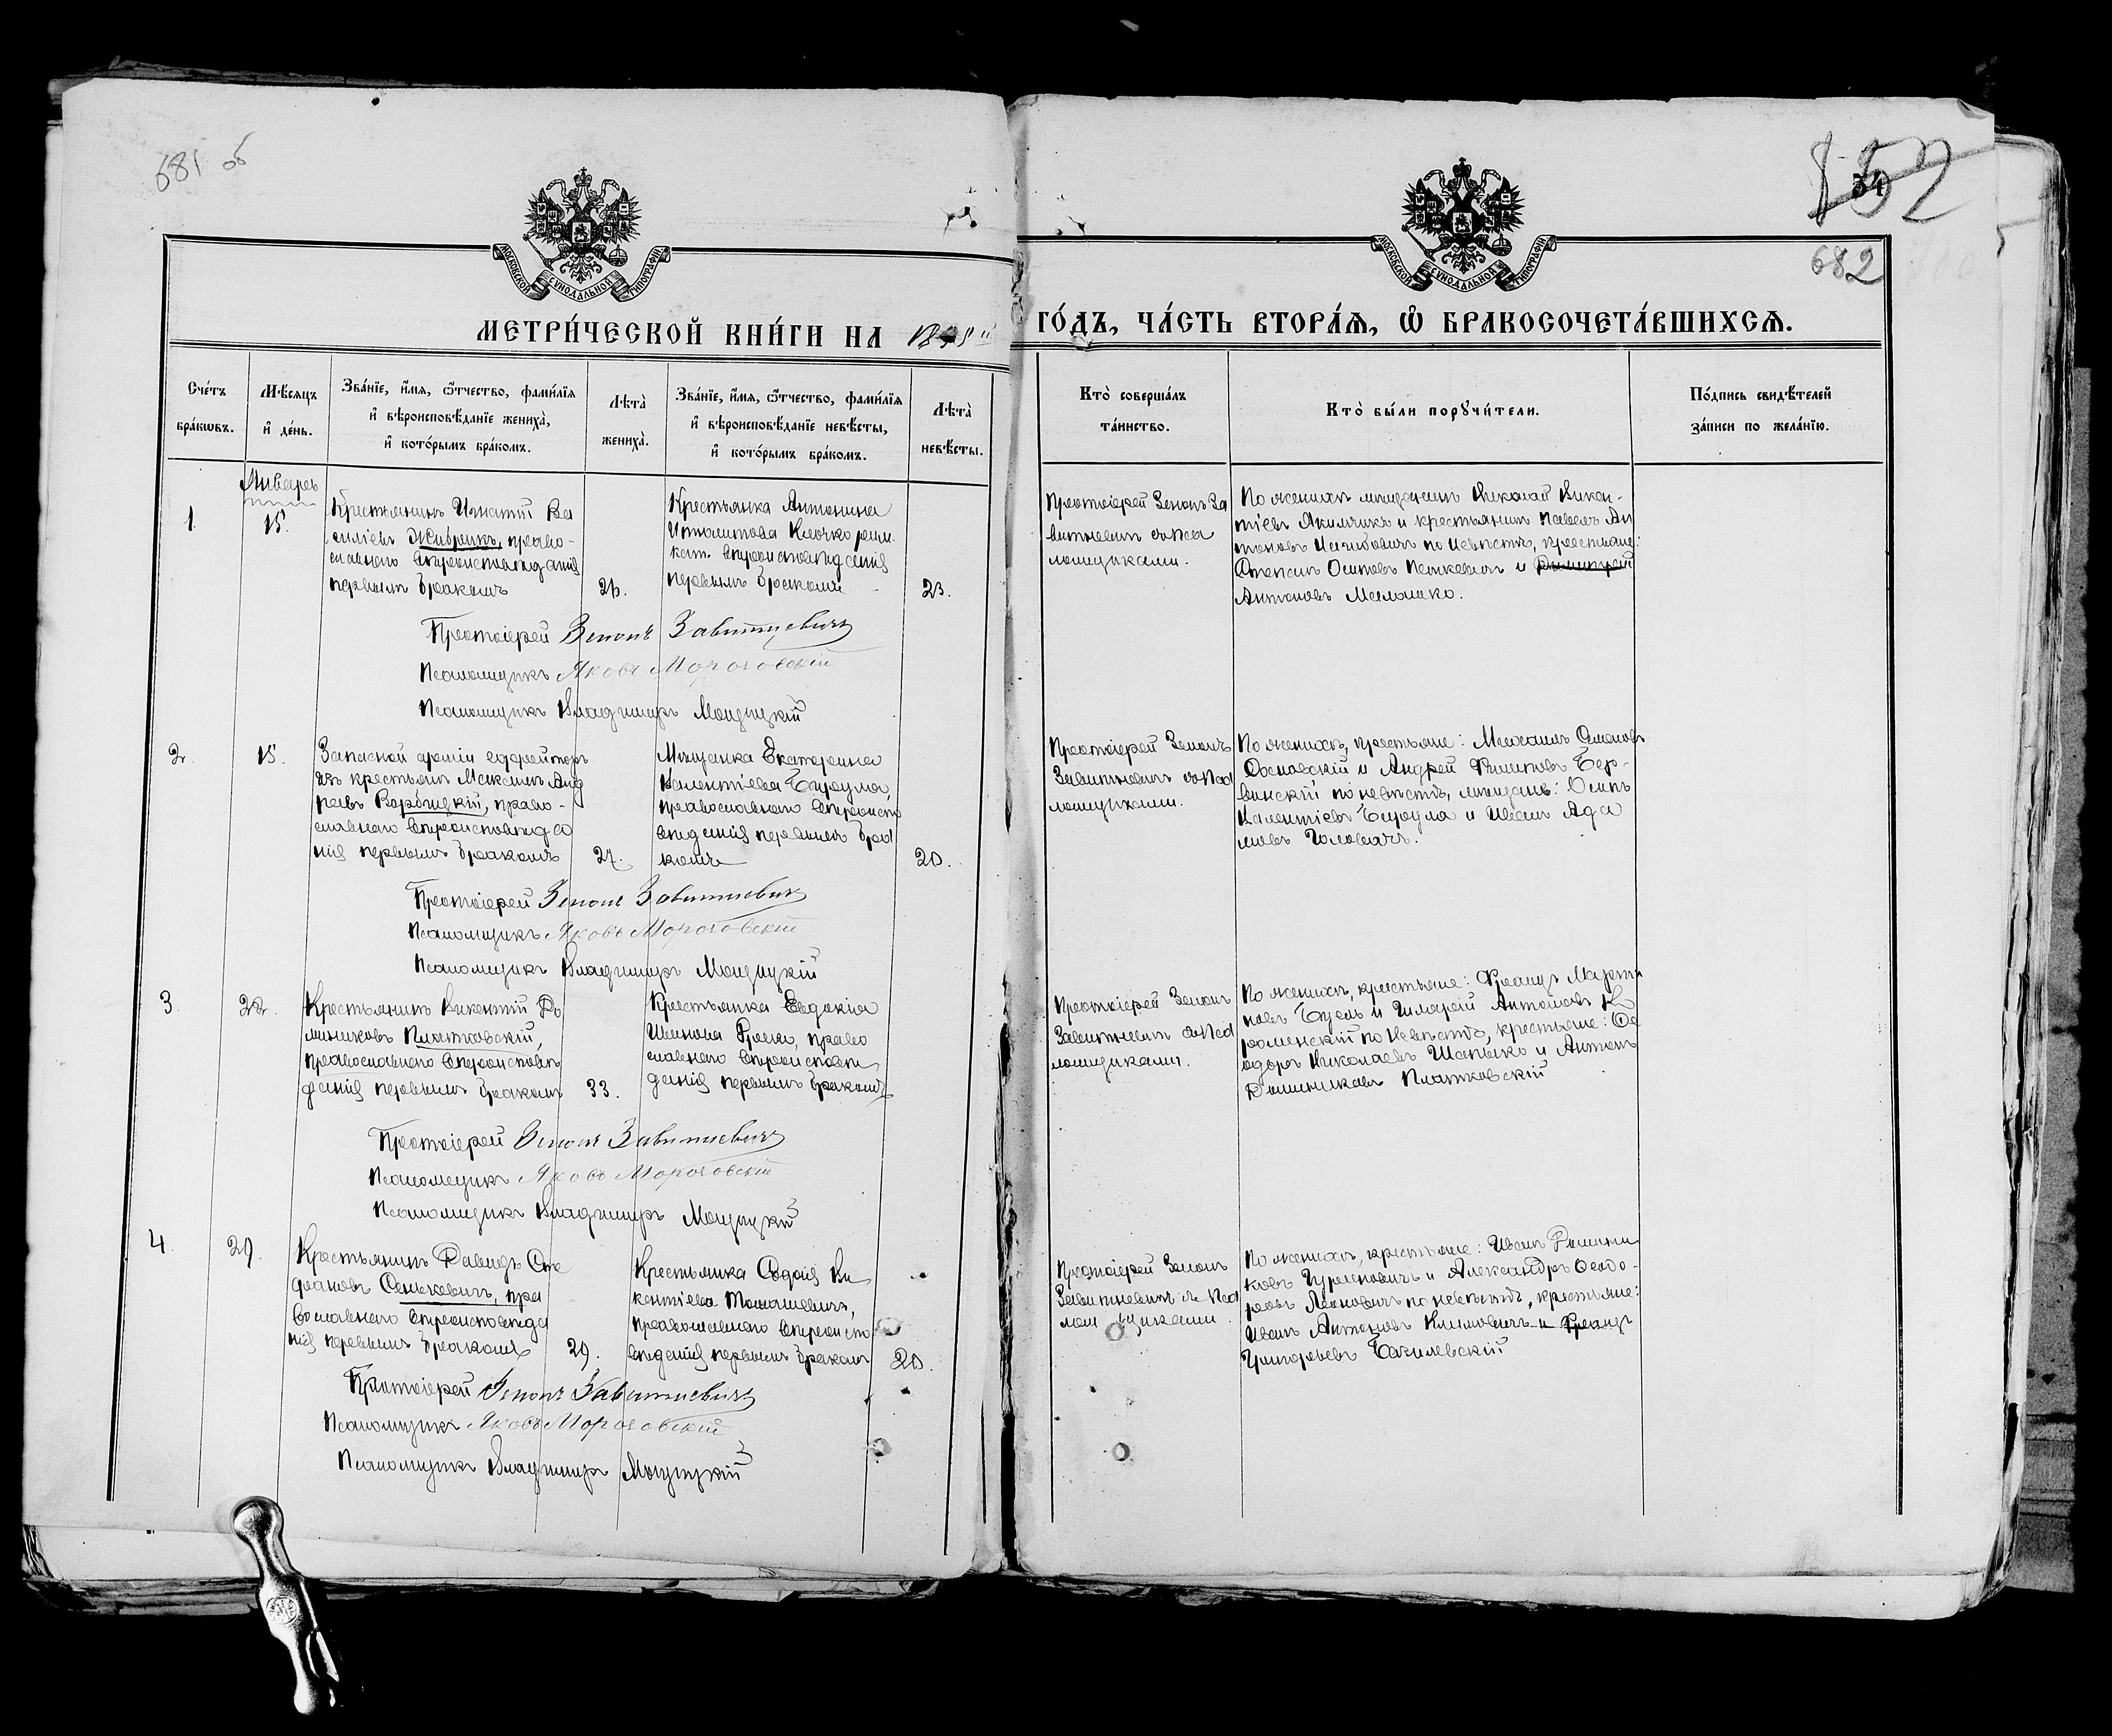 681 об
52
682
МОСКОВСКОЙ СѴНОДАЛЬНОЙ ТИПОГРАФІИ
МОСКОВСКОЙ СѴНОДАЛЬНОЙ ТИПОГРАФІИ
МЕТРИ́ЧЕСКОЙ КНИ́ГИ НА
ГО́ДЪ, ЧА́СТЬ ВТОРА́Ѧ, Ѡ҆ БРАКОСОЧЕТА́ВШИХСѦ.
Сче́тъ бра́кѡвъ.
Мѣ́сѧцъ и҆ де́нь.
Зва́нїе, и҆́мѧ, ѻ҆́тчество, фами́лїѧ
и҆ вѣроисповѣ́данїе жениха̀,
и҆ кото́рымъ бра́комъ.
Лѣта̀ жениха̀.
Зва́нїе, и҆́мѧ, ѻ҆́тчество, фами́лїѧ
и҆ вѣроисповѣ́данїе невѣ́сты,
и҆ кото́рымъ бра́комъ.
Лѣта̀ невѣ́сты.
Кто̀ соверша́лъ та́инство.
Кто̀ бы́ли порꙋчи́тели.
По́дпись свидѣ́телей за́писи по жела́нїю.
Январь
1.
15.
Крестьянинъ Игнатій Ва
силіевъ Живрикъ, право-
славнаго вѣроисповѣданія
первымъ бракомъ
26.
Крестьянка Антонина
Клочко рим.
кат. вѣроисповѣданія
первымъ бракомъ
23.
Протоіерей Зенонъ За
витневичъ съ пса
ломщиками.
По женихѣ мѣщанинъ Николай Викен-
тіевъ Якимчикъ и крестьянинъ Павелъ Ан
тоновъ по невѣстѣ, крестьяне:
Осиповъ и Димитрій
Антоновъ
Протоіерей Зенонъ Завитневичъ
Псаломщикъ Яковъ Морозовскій
Псаломщикъ Владимиръ Мощицкій
2.
15.
Запасной арміи ефрейторъ
изъ крестьянъ Максимъ Анд
реевъ Варбицкій, право-
славнаго вѣроисповѣда
нія первымъ бракомъ
27.
Мѣщанка Екатерина
Валентіева Бируля,
православнаго вѣроиспо
вѣданія первымъ бра
комъ
20.
Протоіерей Зенонъ
Завитневичъ съ пса
ломщиками.
По женихѣ, крестьяне: Михаилъ Семеновъ
Сосновскій и Андрей Филиповъ Бер-
винскій по невѣстѣ, мѣщане: Осипъ
Валентіевъ Бируля и Иванъ Ада
мовъ Головачъ.
Протоіерей Зенонъ Завитневичъ
Псаломщикъ Яковъ Морозовскій
Псаломщикъ Владимиръ Мощицкій
3.
22.
Крестьянинъ Викентій До
миниковъ Плятковскій,
православнаго вѣроисповѣ
данія первымъ бракомъ
33.
Крестьянка Евдокія
право
славнаго вѣроисповѣ
данія первымъ бракомъ
Протоіерей Зенонъ
Завитневичъ съ пса
ломщиками.
По женихѣ, крестьяне: Францъ Марти
новъ и Иларій Антоновъ
по невѣстѣ, крестьяне: Ѳе
одоръ Николаевъ Шапыко и Антонъ
Доминиковъ Плятковскій
Протоіерей Зенонъ Завитневичъ
Псаломщикъ Яковъ Морозовскій
Псаломщикъ Владимиръ Мощицкій
4.
29.
Крестьянинъ Давидъ Сте
фановъ Сенькевичъ, пра
вославнаго вѣроисповѣда
нія первымъ бракомъ
29.
Крестьянка Софія Ви
кентіева Томашевичъ,
православнаго вѣроиспо
вѣданія первымъ бракомъ
20.
Протоіерей Зенонъ
Завитневичъ съ пса
ломщиками.
По женихѣ, крестьяне: Иванъ Домини
ковъ Гуриновичъ и Александръ Ѳеодо-
ровъ Леоновичъ по невѣстѣ, крестьяне:
Иванъ Антоновъ Климовичъ и Францъ
Григорьевъ
Протоіерей Зенонъ Завитневичъ
Псаломщикъ Яковъ Морозовскій
Псаломщикъ Владимиръ Мощицкій